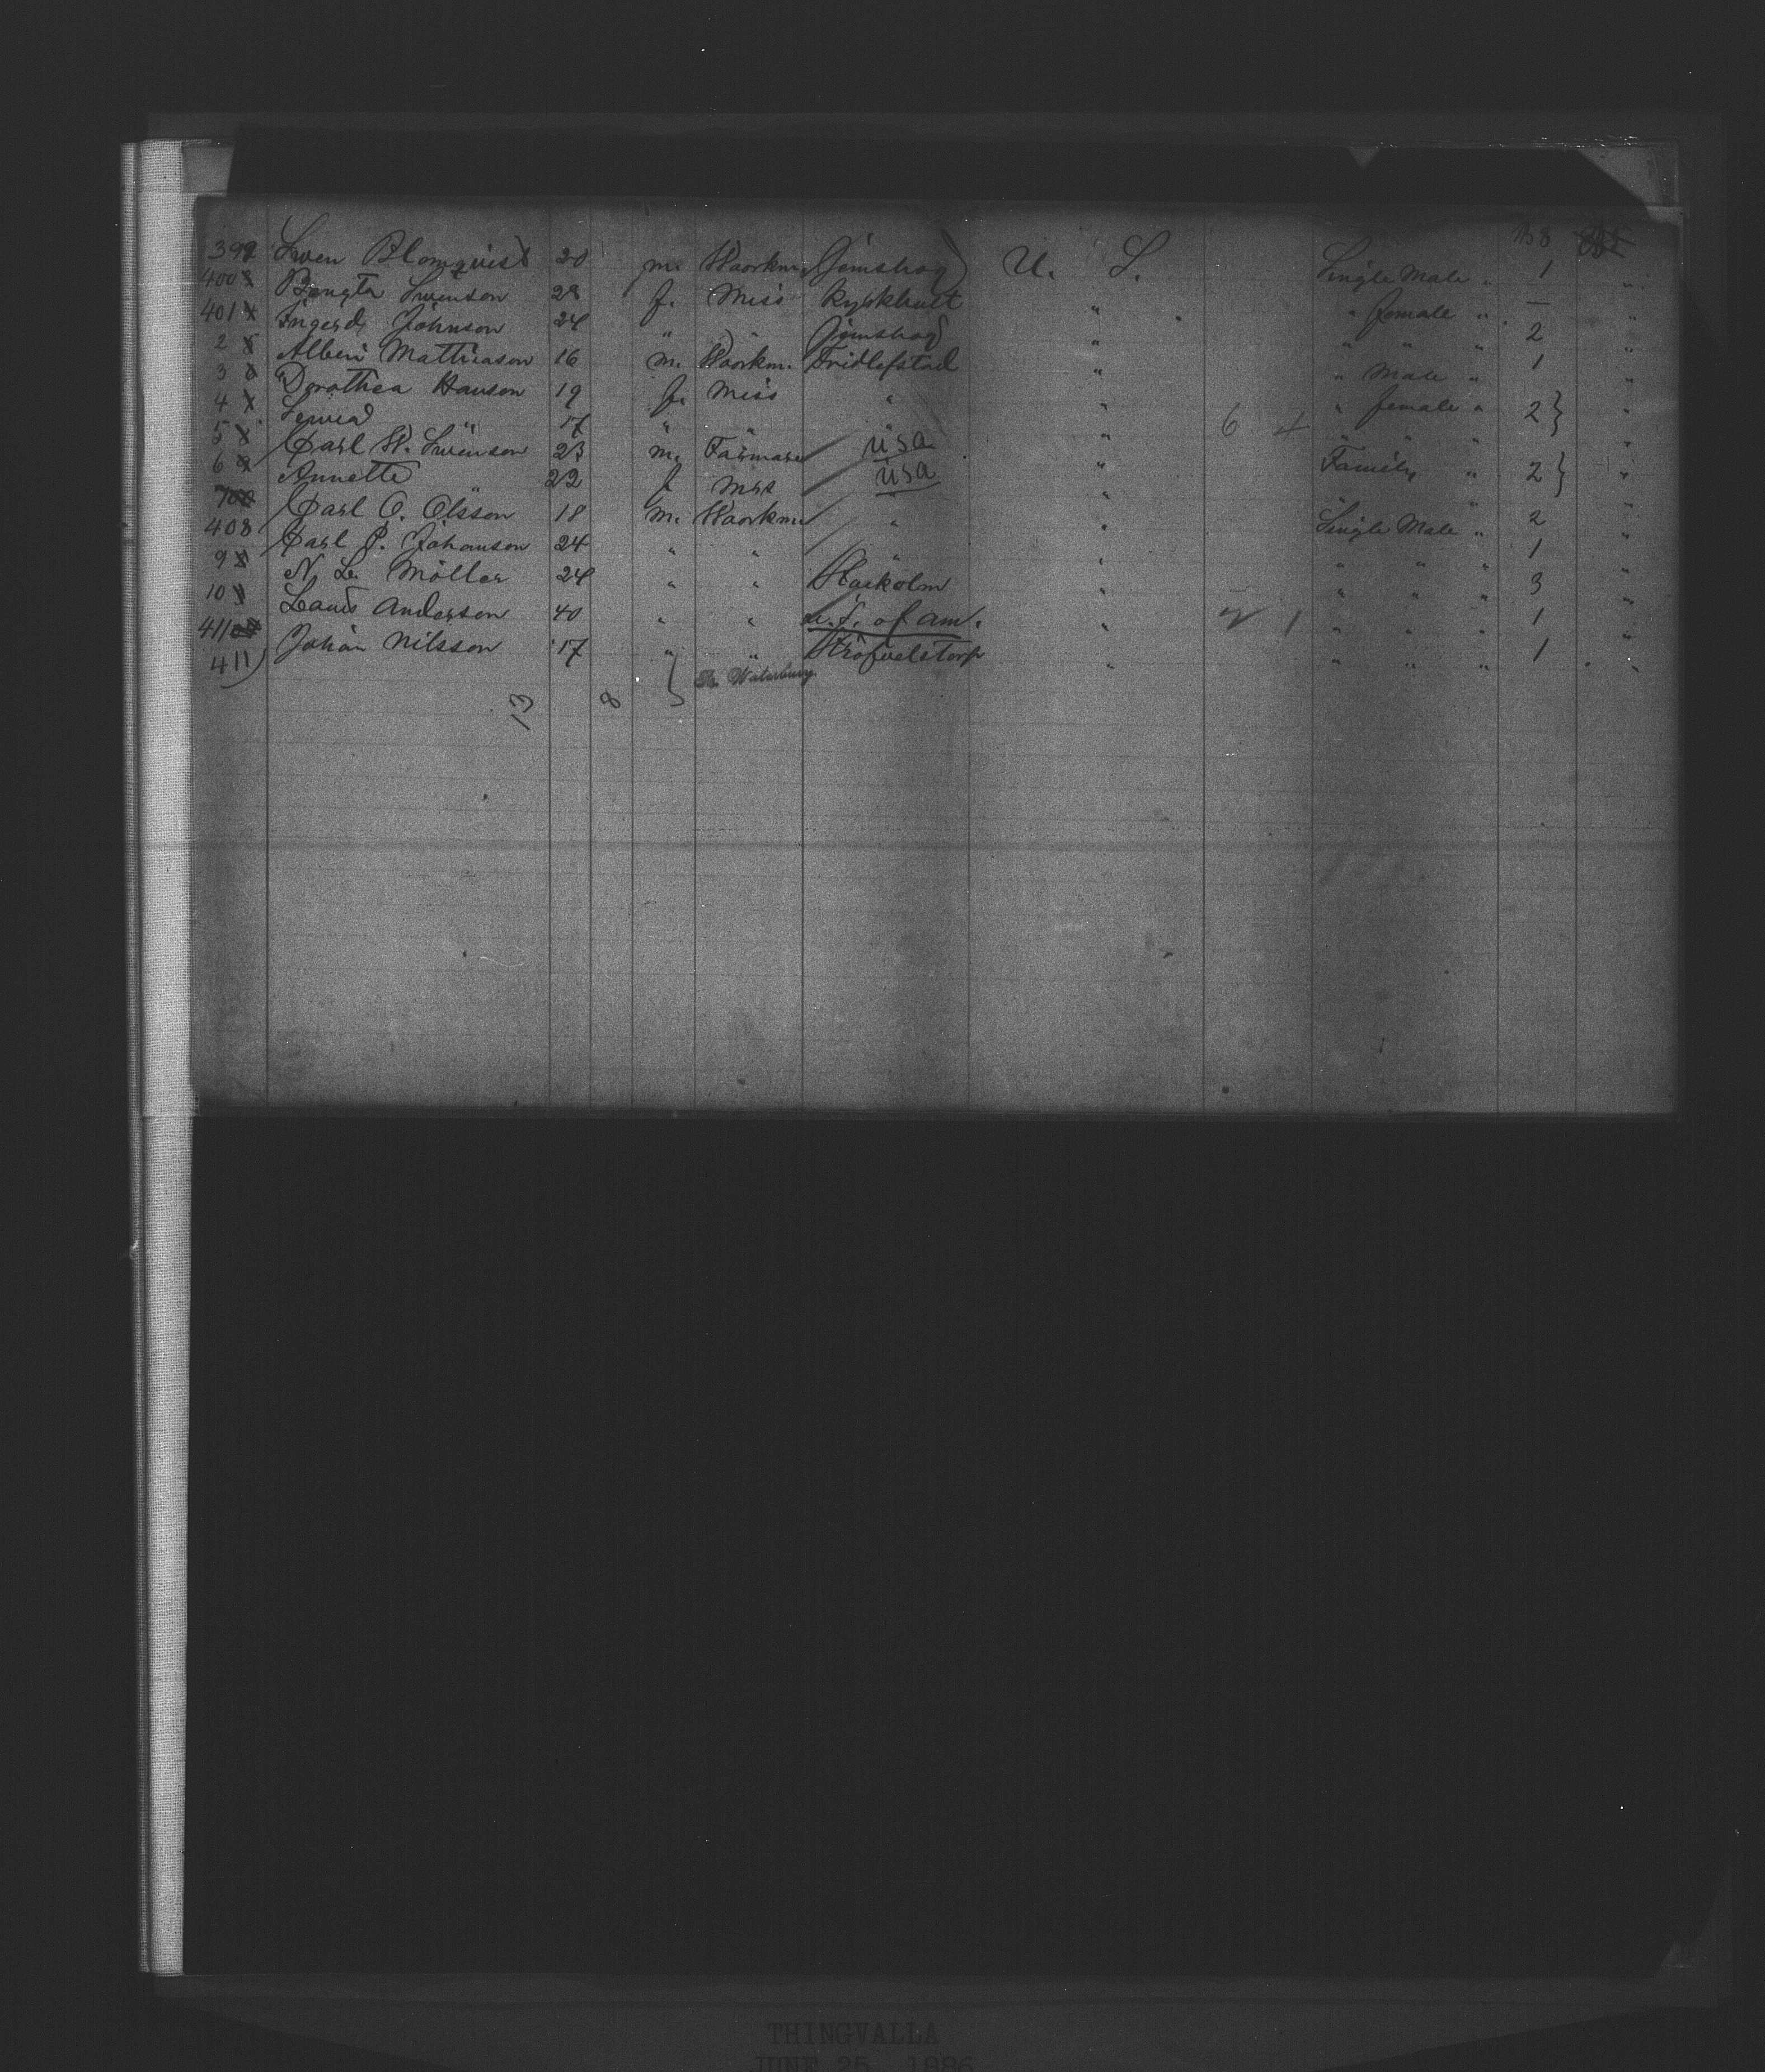 399 Swen Blomqvist 20 m. Woorkm. Jemshög U. S. Single Male " 1 "
400 Bengta Swenson 28 f. Miss Kyrkhult " " female " — "
401 Ingerd Johnson 24 " " Jemshög " " " " 2 "
2 Albin Mattiason 16 m. Woorkm. Fridlefstad " " Male " 1 "
3 Dorothea Hanson 19 f. Miss " " " female " 2 } "
4 " 17 " " " 6 4 " " " "
5 Carl W. Swenson 23 m. Farmare USA " Family " 2 } "
6 Annette " 22 f Mrs USA " "
7 Carl O. Olsson 18 m. Woorkm " " Single Male " 2 "
408 Carl P. Johanson 24 " " " " " " " 1 "
9 N. L. Möller 24 " " " " " " 3 "
10 Anderson 40 " " U. S. of Am. " 2 1 " " " 1 "
411 Johan Nilsson 17 " " Ströfvelstorp " " " " 1 "
411)
13 8
THINGVALLA
JUNE 25, 1886